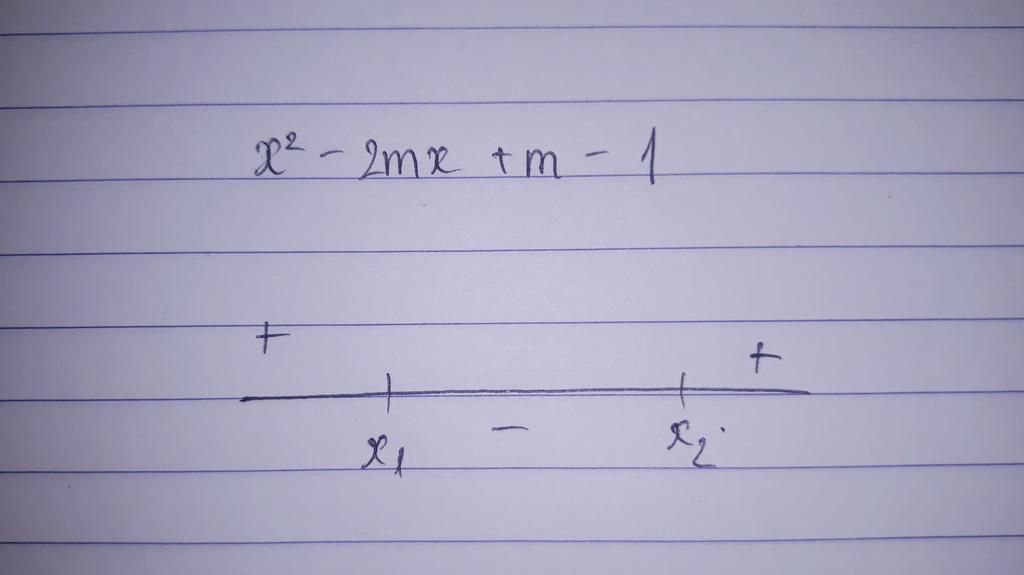 x² - 2mx + m - 1
+ +
x₁ - x₂